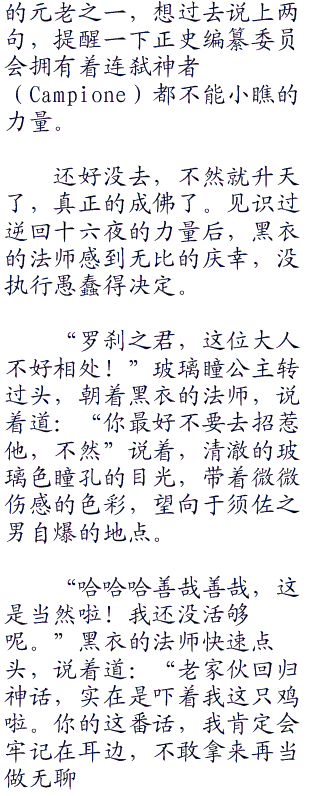 的元老之一，想过去说上两
句，提醒一下正史编纂委员
会拥有着连弑神者
（Campione）都不能小瞧的
力量。
还好没去，不然就升天
了，真正的成佛了。见识过
逆回十六夜的力量后，黑衣
的法师感到无比的庆幸，没
执行愚蠢得决定。
“罗刹之君，这位大人
不好相处！”玻璃瞳公主转
过头，朝着黑衣的法师，说
着道：“你最好不要去招惹
他，不然”说着，清澈的玻
璃色瞳孔的目光，带着微微
伤感的色彩，望向于须佐之
男自爆的地点。
“哈哈哈善哉善哉，这
是当然啦！我还没活够
呢。”黑衣的法师快速点
头，说着道：“老家伙回归
神话，实在是吓着我这只鸡
啦。你的这番话，我肯定会
牢记在耳边，不敢拿来再当
做无聊